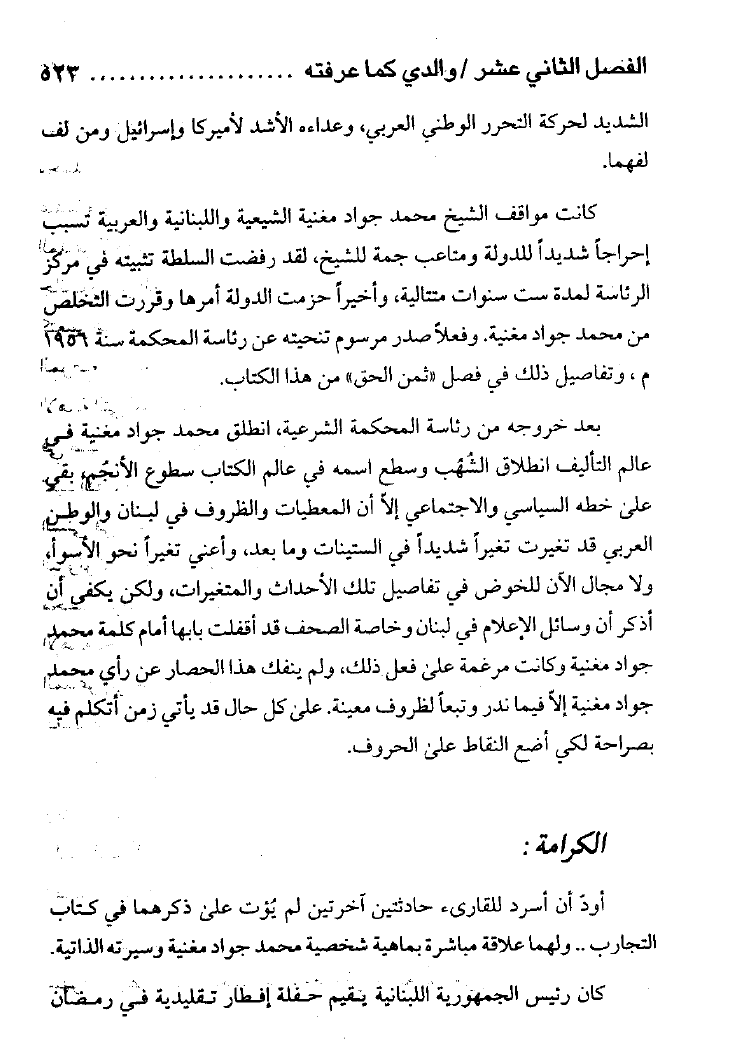 الفصل الثاني عشر / والدي كما عرفته ..................... ٥٢٣
الشديد لحركة التحرر الوطني العربي، وعداءه الأشد لأميركا وإسرائيل ومن لف
لفهما.
كانت مواقف الشيخ محمد جواد مغنية الشيعية واللبنانية والعربية تسبب
إحراجاً شديداً للدولة ومتاعب جمة للشيخ، لقد رفضت السلطة تثبيته في مركز
الرئاسة لمدة ست سنوات متتالية، وأخيراً حزمت الدولة أمرها وقررت التخلص
من محمد جواد مغنية. وفعلاً صدر مرسوم تنحيته عن رئاسة المحكمة سنة ١٩٥٦
م ، وتفاصيل ذلك في فصل «ثمن الحق» من هذا الكتاب.
بعد خروجه من رئاسة المحكمة الشرعية، انطلق محمد جواد مغنية في
عالم التأليف انطلاق الشُهُب وسطع اسمه في عالم الكتاب سطوع الأنجُم، بقي
علىٰ خطه السياسي والاجتماعي إلاّ أن المعطيات والظروف في لبنان والوطن
العربي قد تغيرت تغيراً شديداً في الستينات وما بعد، وأعني تغيراً نحو الأسوأ،
ولا مجال الآن للخوض في تفاصيل تلك الأحداث والمتغيرات، ولكن يكفي أن
أذكر أن وسائل الإعلام في لبنان وخاصة الصحف قد أقفلت بابها أمام كلمة محمد
جواد مغنية وكانت مرغمة علىٰ فعل ذلك، ولم ينفك هذا الحصار عن رأي محمد
جواد مغنية إلاّ فيما ندر وتبعاً لظروف معينة. علىٰ كل حال قد يأتي زمن أتكلم فيه
بصراحة لكي أضع النقاط علىٰ الحروف.
الكرامة :
أودّ أن أسرد للقارىء حادثتين آخرتين لم يُؤت علىٰ ذكرهما في كتاب
التجارب .. ولهما علاقة مباشرة بماهية شخصية محمد جواد مغنية وسيرته الذاتية.
كان رئيس الجمهورية اللبنانية يقيم حفلة إفطار تقليدية في رمضان